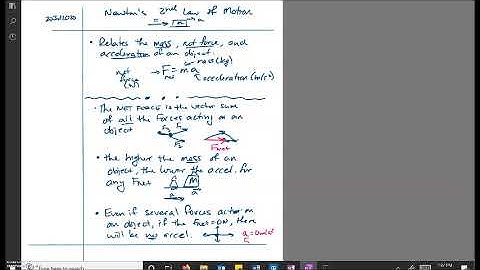 Newton's 2nd Law of Motion
• Relates the mass, net force, and
acceleration of an object.
mass (kg)
net
force
(N)
→ F = ma
net
acceleration (m/s²)
• The NET FORCE is the vector sum
of all the forces acting on an
object
F₁
F₂
F₃
Fnet
• the higher the mass of an
object, the lower the accel. for
any Fnet
m
M
a
a
• Even if several forces act on
an object, if the Fnet = 0N, there
will be no accel.